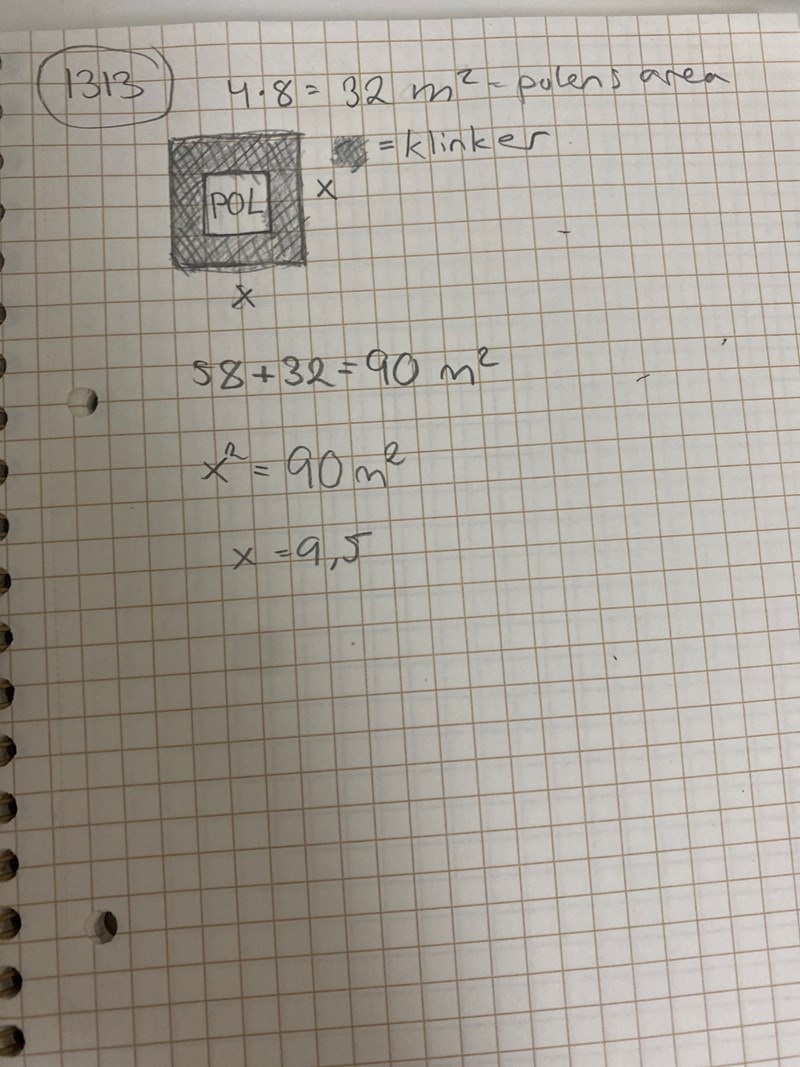 1313
4·8 = 32 m² - polens area
= klinker
POL
x
x
58+32=90 m²
x² = 90 m²
x = 9,5